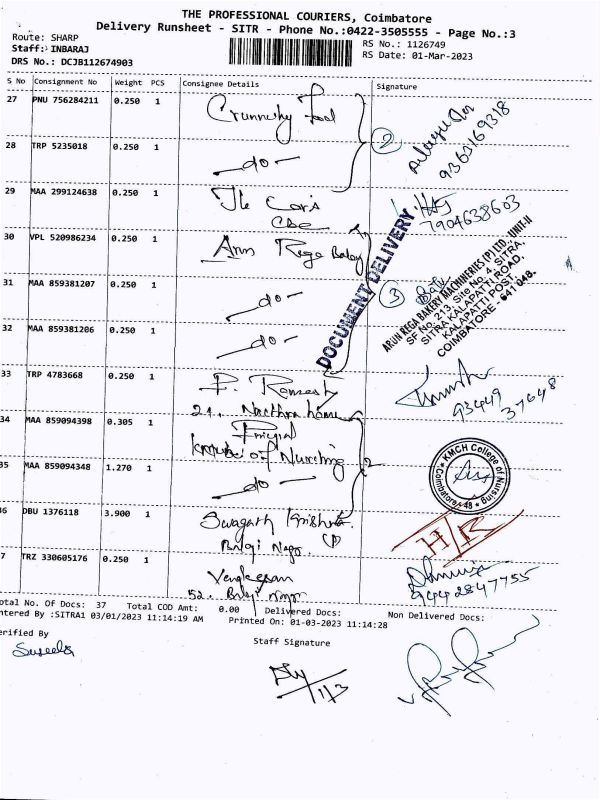 THE PROFESSIONAL COURIERS, Coimbatore
Delivery Runsheet - SITR - Phone No.:0422-3505555 - Page No.:3
Route: SHARP
RS No.: 1126749
Staff: INBARAJ
RS Date: 01-Mar-2023
DRS No.: DCJB112674903
S No Consignment No Weight PCS Consignee Details Signature
27 PNU 756284211 0.250 1 Crunnchy Food
2
9363169318
28 TRP 5235018 0.250 1 - do -
29 MAA 299124638 0.250 1 The Cor's
CBE
7904638603
30 VPL 520986234 0.250 1 Arun Rega Bakey
DOCUMENT DELIVERY
ARUN REGA BAKERY MACHINERIES (P) LTD. UNIT-II
SF No. 217, Site No. 4, SITRA,
SITRA KALAPATTI ROAD,
KALAPATTI POST,
COIMBATORE - 641 048.
31 MAA 859381207 0.250 1 - do -
3
32 MAA 859381206 0.250 1 - do -
33 TRP 4783668 0.250 1 P. Ramesh
21.
93449
37648
34 MAA 859094398 0.305 1
of Nursing
35 MAA 859094348 1.270 1 - do -
KMCH College of Nursing
Coimbatore - 48
36 DBU 1376118 3.900 1 Swagath Krishna
Balaji Nagar.
H/R
37 TRZ 330605176 0.250 1 Venkatesan
52. Balaji Nagar
9442847755
Total No. Of Docs: 37 Total COD Amt: 0.00 Delivered Docs: Non Delivered Docs:
Entered By :SITRA1 03/01/2023 11:14:19 AM Printed On: 01-03-2023 11:14:28
Verified By
Staff Signature
1/3